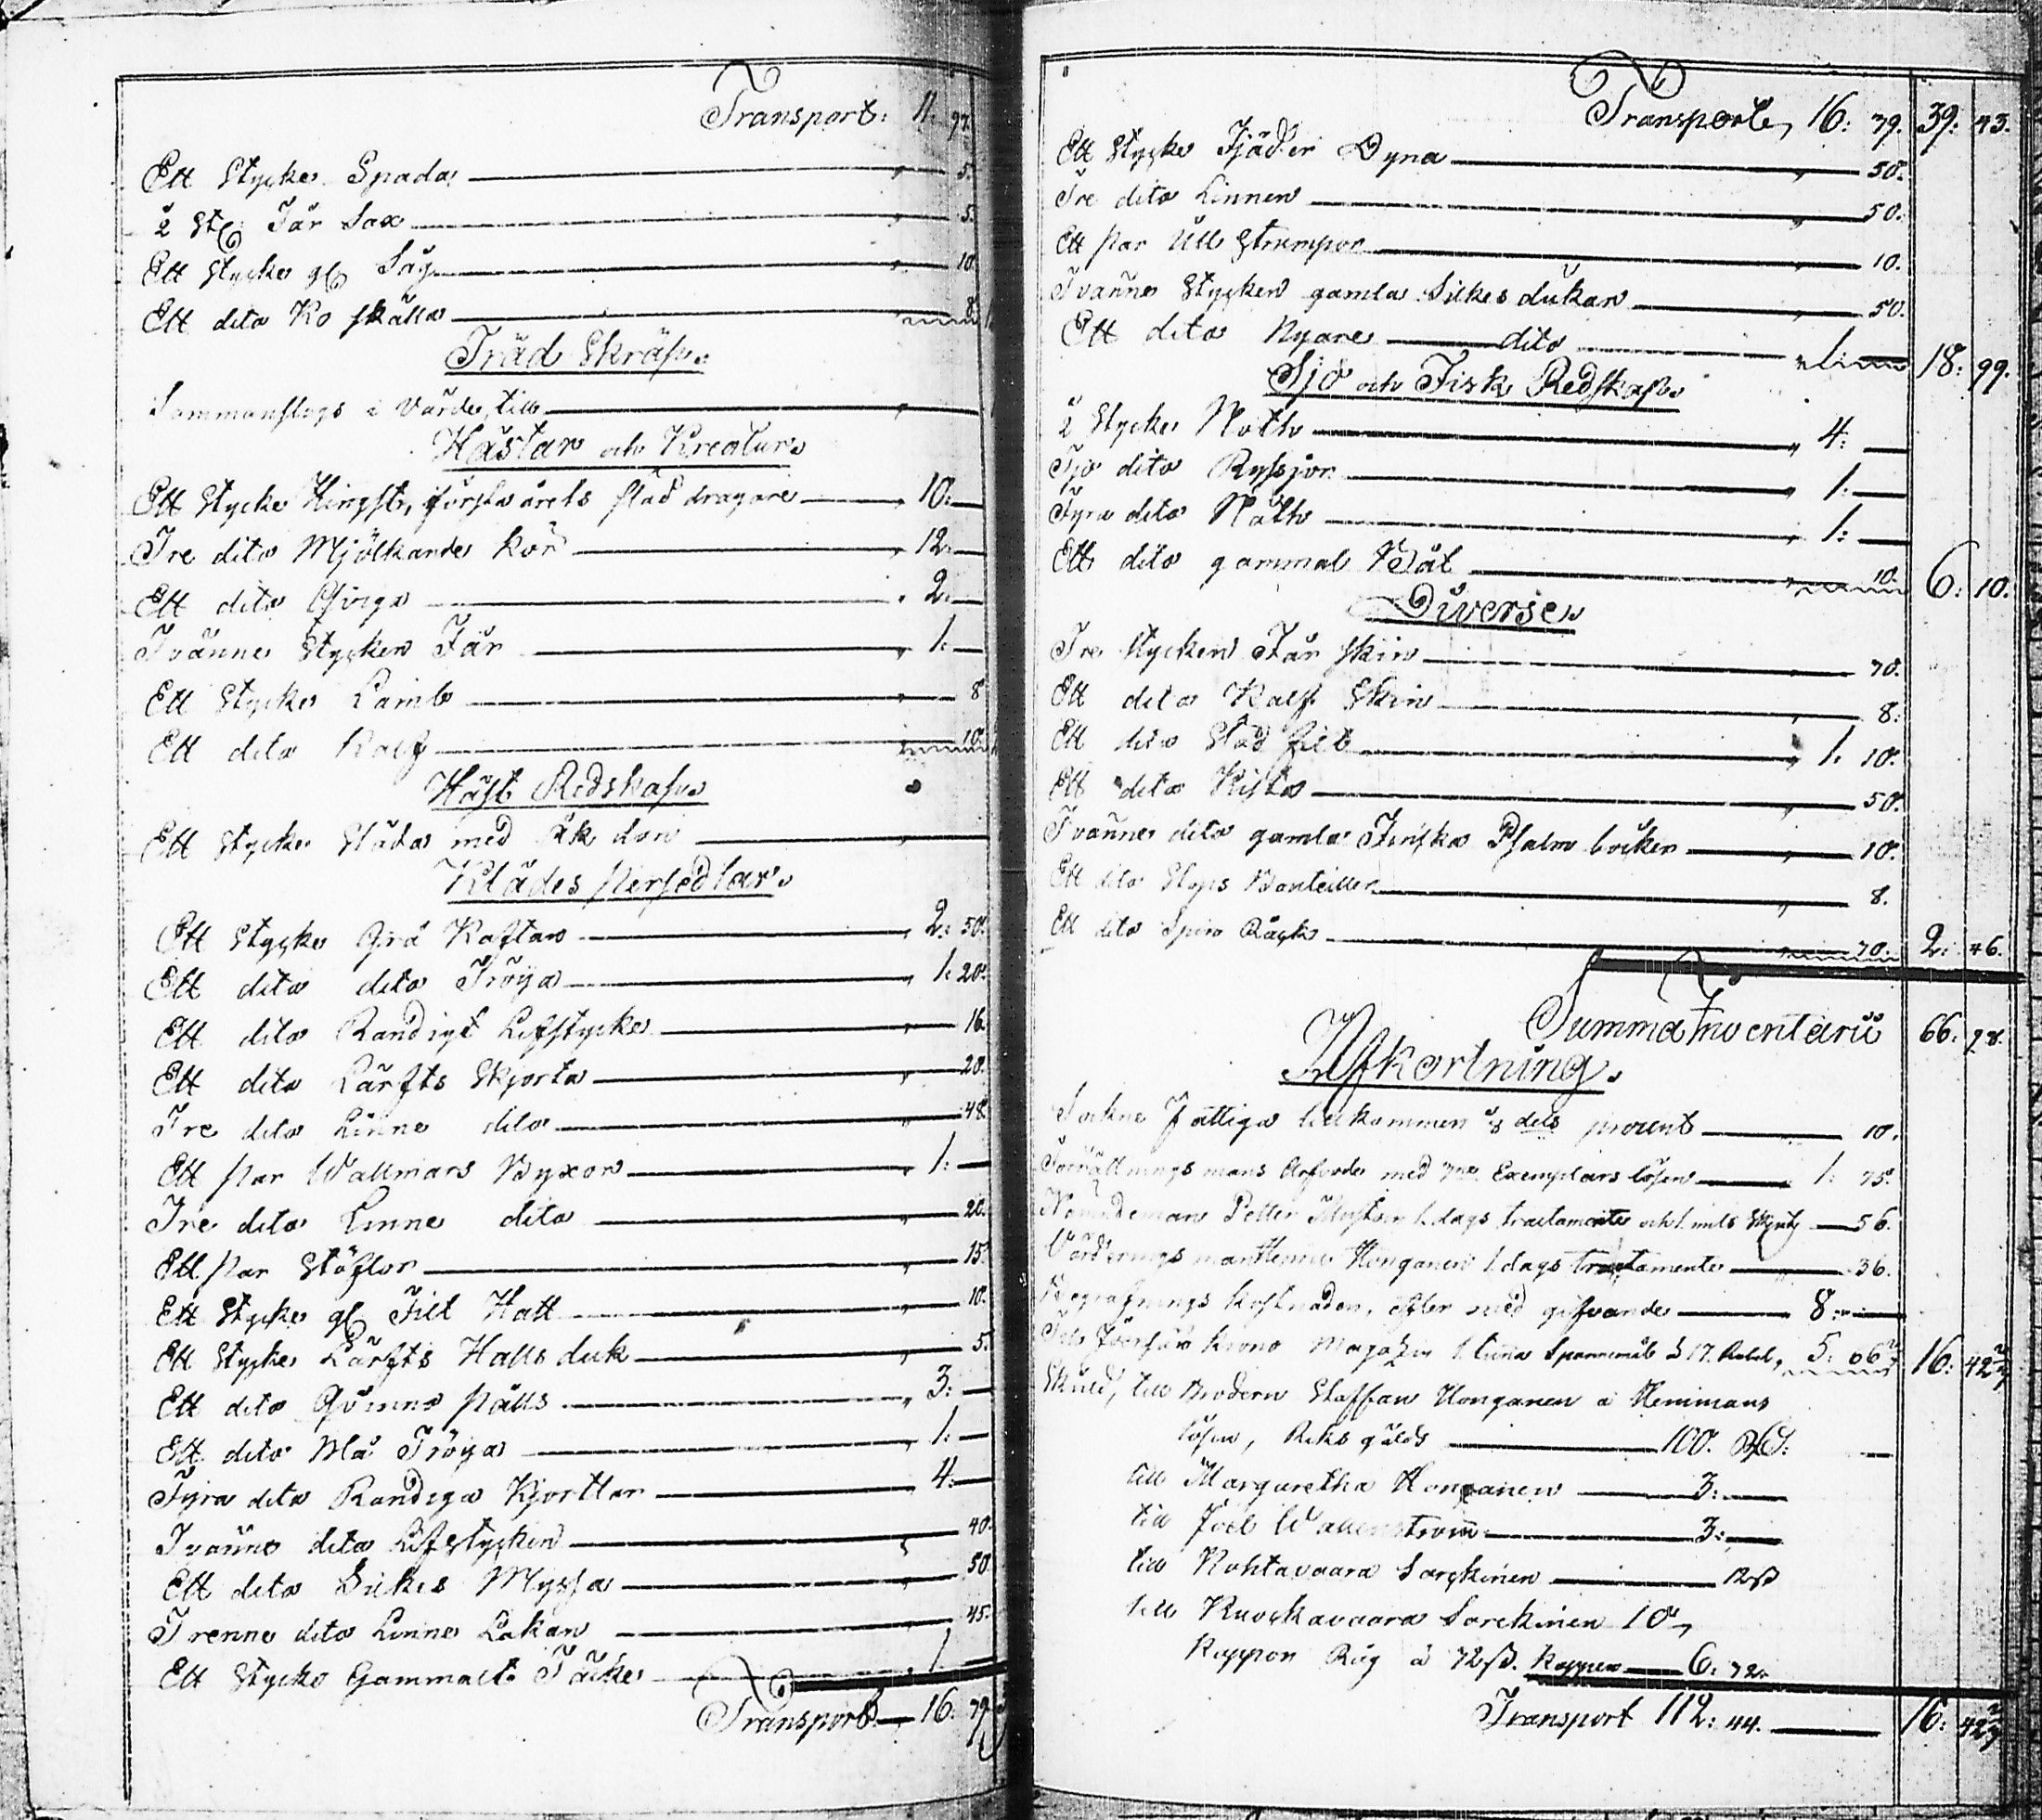 Transport: 11. 97.
Ett Stycke Spada „ 5.
2 St: Får Sax „ 5.
Ett Stycke gl: Såg „ 10.
Ett dito Ko skälla „ 8.
Träd Skräp.
Sammanslogs i Värde, till „
Hästar och Kreatur.
Ett Stycke Hingst, första årets släd dragare „ 10: —
Tre dito Mjölkande kor „ 12: —
Ett dito Qviga „ 2: —
Tvänne Stycken Får „ 1: —
Ett Stycke Lamb „ 8
Ett dito Kalf „ 10.
Häst Redskap.
Ett Stycke Släda med åk don „
Klädes Persedlar.
Ett Stycke Grå Kaftan „ 2: 50.
Ett dito dito Tröya „ 1: 20.
Ett dito Randigt Lifstycke „ 16.
Ett dito Lärfts Skjorta „ 20.
Tre dito Linne dito „ 48.
Ett Par Wallmars Byxor „ 1: —
Tre dito Linne dito „ 20.
Ett Par Stöflor „ 15.
Ett Stycke gl: Filt Hatt „ 10.
Ett Stycke Lärfts Halls duk „ 5.
Ett dito Qvinno Pälls „ 3: —
Ett dito Blå Tröya „ 1: —
Fyra dito Randiga Kjorttlar „ 4: —
Tvänne dito Lifstycken „ 40.
Ett dito Silkes Myssa „ 50
Trenne dito Linne Lakan „ 45.
Ett Stycke Gammalt Täcke „ 1 —
Transport „ 16: 79.
Transporte, 16: 79. 39: 43.
Ett Stycke Fjäder Dyna „ 50.
Tre dito Linnen „ 50.
Ett Par Ull Strumpor „ 10.
Tvänne Stycken gamla Silkes dukar „ 50.
Ett dito Nyare dito „ 1: — 18: 99.
Sjö och Fisk Redskap.
2 Stycke Noth „ 4: —
Sju dito Ryssjor „ 1: —
Fyra dito Näth „ 1: —
Ett dito gammal Båt „ 10. 6: 10.
Diverse.
Tre Stycken Får skin „ 70.
Ett dito Kalf Skin „ 8:
Ett dito Släd filt „ 1. 10.
Ett dito Kista „ 50.
Tvänne dito gamla Finska Psalm böcker „ 10.
Ett dito Stops Bouteille „ 8.
Ett dito Spin Råck „ 70. 2: 46.
Summa Inventarii 66: 98.
Afkortning.
Sockne fattiga tillkommen ⅛ dels procent 10.
Förrättnings mans Arfvode med Exemplars lösen 1: 75.
Nämndeman Petter 1. dags tractamente och 1. mils Skjuts 56.
Värderings man Henric Honganen 1. dags tractamente „ 36.
Begrafnings kostnaden, efter med gifvande 8: —
Krono Magazin 1. tunna Spannmål 5: 66 16: 42
Skuld, till Brodern Staffan Honganen i Hemmans
lösen, Riks gälds 100. —
till Margaretha Honganen 3: —
till Joel Wallenström 3: —
till Kohtavaara Sarckinen 12 ß
till Kuockavaara Sorckinen 10,
Kappor Råg à 72 ß. Kappen 6: 72.
Transport 112: 44. 16: 42